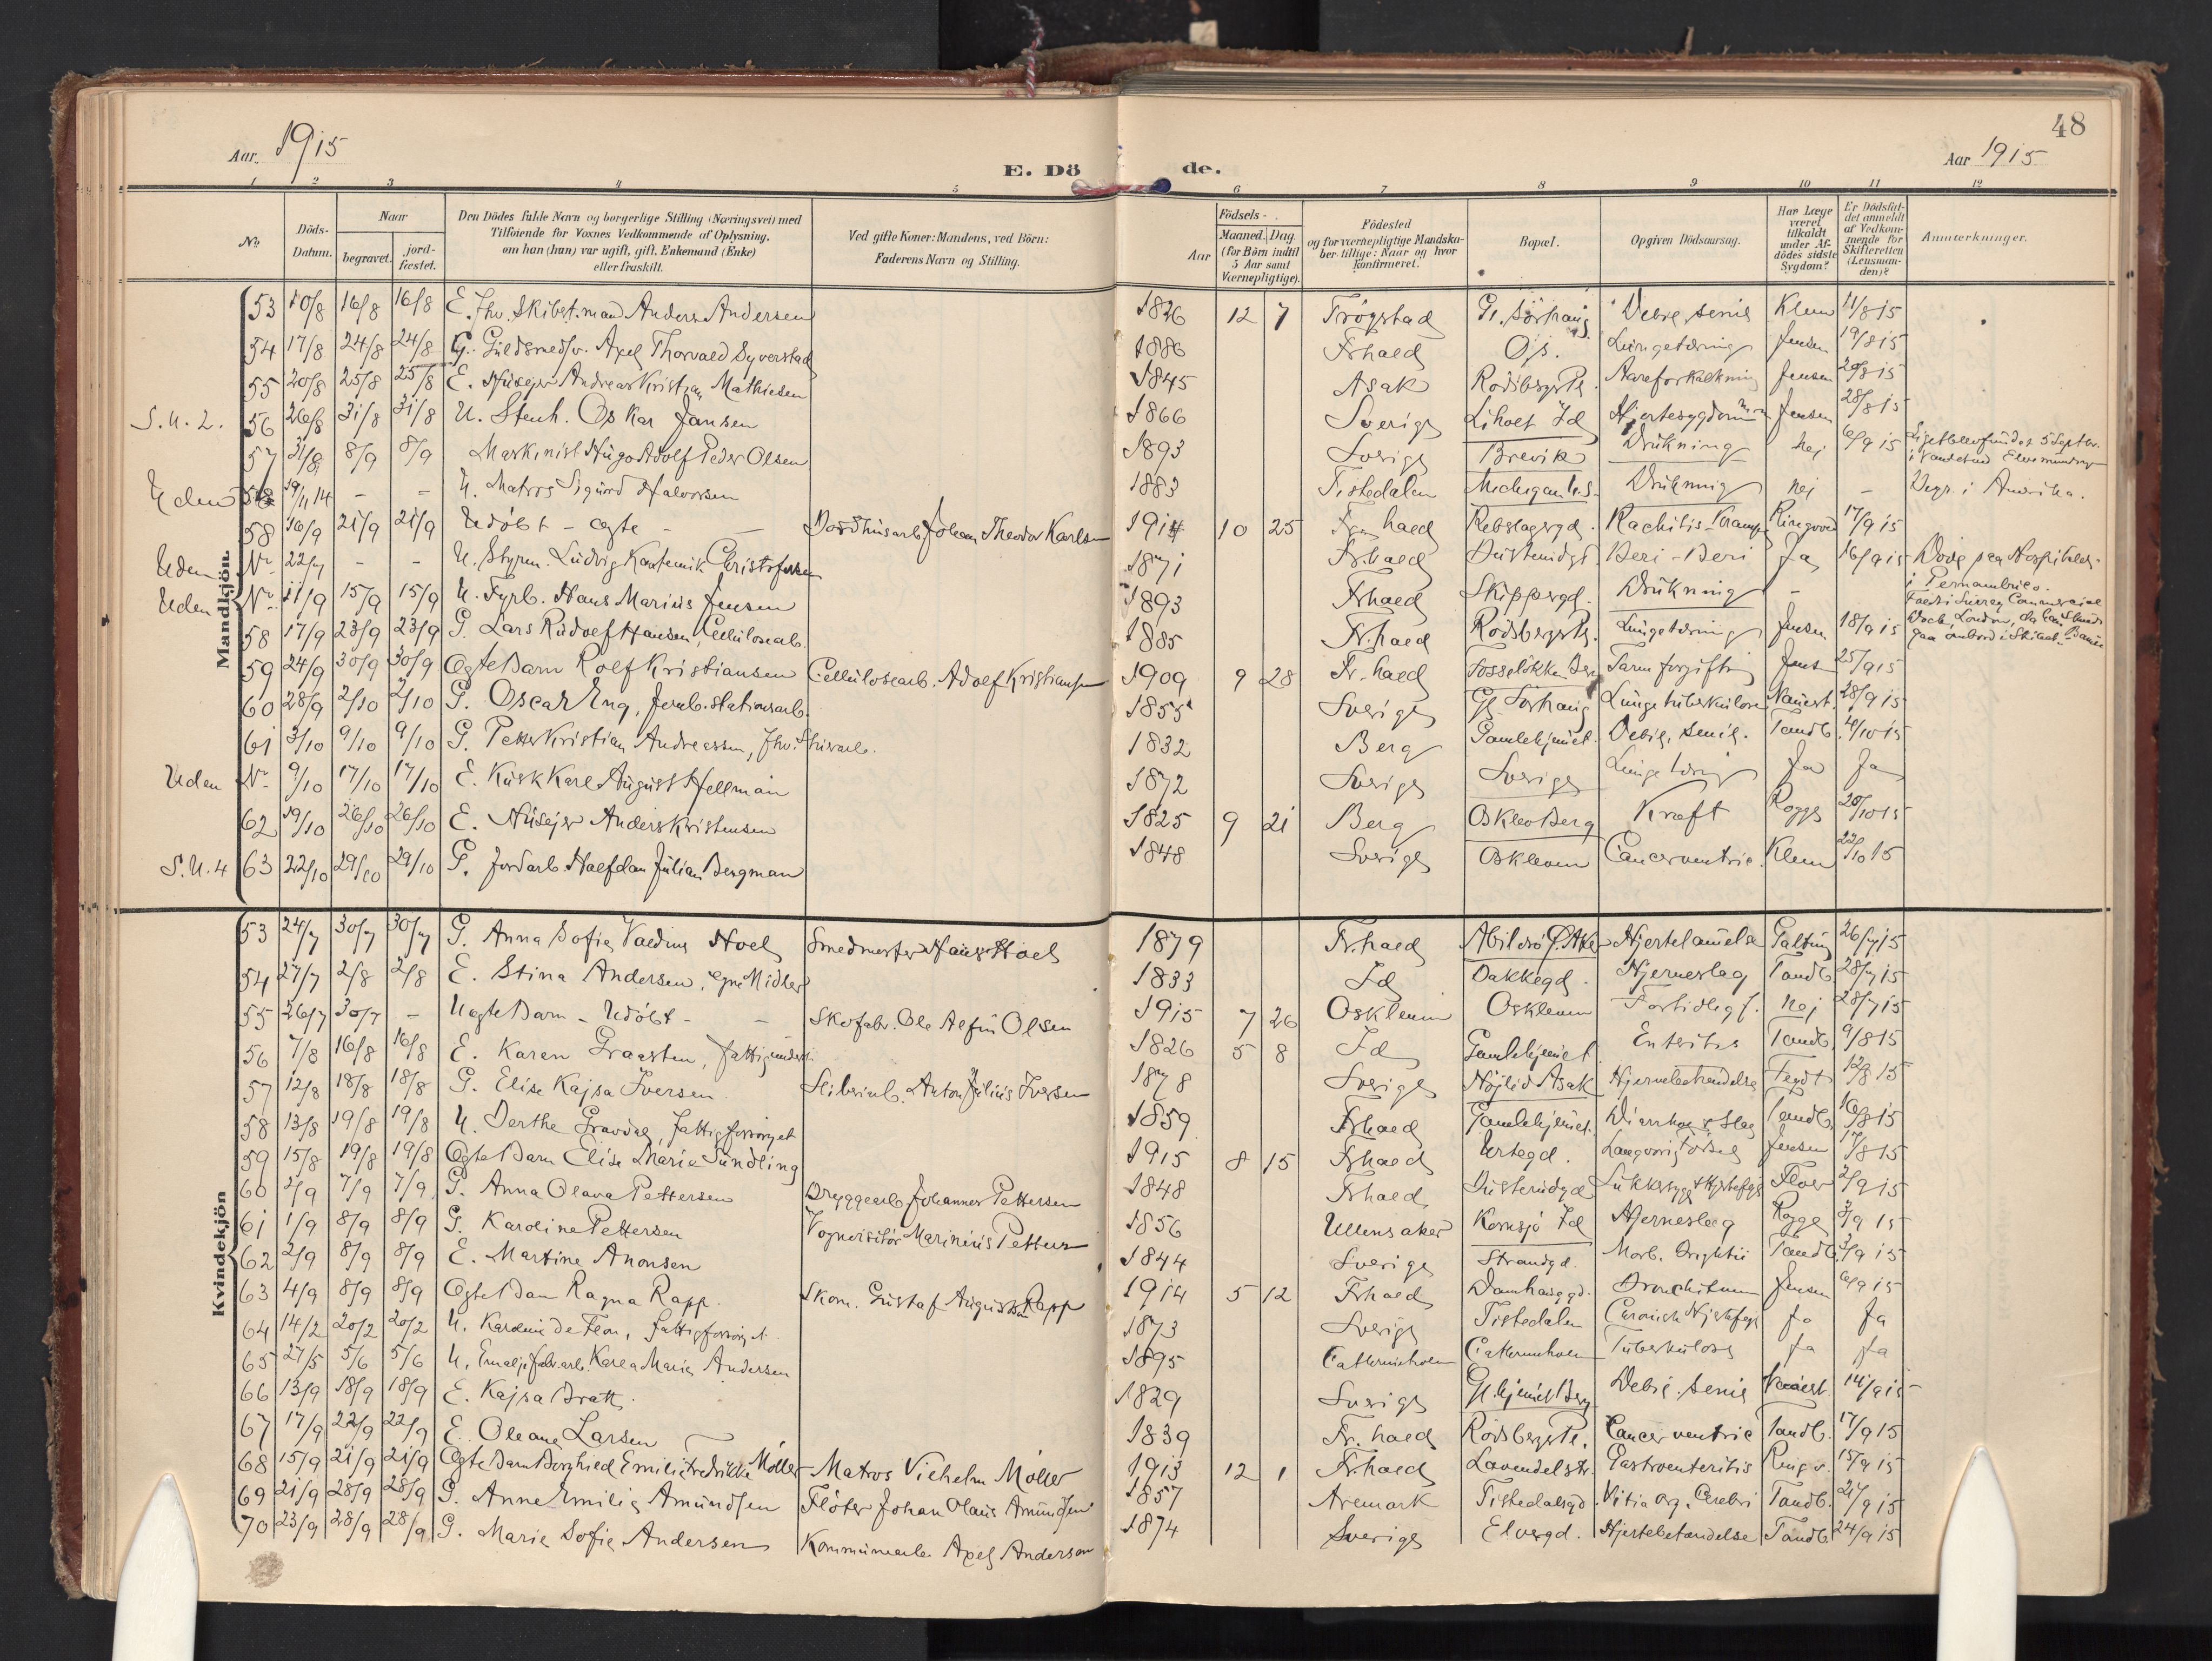 48
Aar. 1915
E. Dö de.
Aar 1915
1 2 3 4 5 6 7 8 9 10 11 12
No Döds-Datum. Naar begravet. jord-fæstet. Den Dödes fulde Navn og borgerlige Stilling (Næringsvei) med Tilföiende for Voxnes Vedkommende af Oplysning, om han (hun) var ugift, gift, Enkemand (Enke) eller fraskilt. Ved gifte Koner: Mandens, ved Börn: Faderens Navn og Stilling. Aar Födsels- Maaned. Dag. (for Börn indtil 5 Aar samt Værnepligtige). Födested og for værnepligtige Mandskaber tillige: Naar og hvor konfirmeret. Bopæl. Opgiven Dödsaarsag. Har Læge været tilkaldt under Afdödes sidste Sygdom? Er Dödsfaldet anmeldt af Vedkommende for Skifteretten (Lensmanden)? Anmærkninger.
Mandkjön.
53 10/8 16/8 16/8 E. Fhv. Skibst.mand Anders Andersen 1826 12 7 Trøgstad Gl. Sörhaug Debil. senil Klem 11/8 15
54 17/8 24/8 24/8 G. Guldsmedsv. Axel Thorvald Syverstad 1886 Frhald Os. Lungetæring Jensen 19/8 15
55 20/8 25/8 25/8 E. Husejer Andreas Kristian Mathiesen 1845 Asak Rødsbergs Pl. Aareforkalkning Jensen 20/8 15
S.U. 2. 56 26/8 31/8 31/8 U. Stenh. Oskar Jansen 1866 Sverige Liholt Id Hjertesygdom Jensen 28/8 15
57 31/8 8/9 8/9 Maskinist Hugo Adolf Peder Olsen 1893 Sverige Brevik Drukning Nej 6/9 15 Liget blev fundet 5 Septbr.
Uden 19/11 14 - - U. Matros Sigurd Halvorsen 1883 Tistedalen Michigan U.S. Drukning Nej - Begr. i Amerika.
58 16/9 21/9 21/9 Udöbt - ægte - - Johan Theodor Karlsen 1914 10 25 Fr.hald Rebslagergd. Rachitis - Krampe Ringvold 17/9 15
Uden Nr. 22/7 - - U. Styrm. Ludvig Christofersen 1871 Fr.hald Beri-Beri Ja 16/9 15 Döde paa Hospitalet i Pernambuco.
Uden Nr. 11/9 15/9 15/9 U. Fyrb. Hans Marius Jensen 1893 Frhald Skippergd. Drukning - Faldt i Surrey Commercial Dock, London,
58 17/9 23/9 23/9 G. Lars Rudolf Hansen, Cellulosearb. 1885 Fr.hald Rødsbergs Pl. Lungetæring Jensen 18/9 15
59 24/9 30/9 30/9 Ægte Barn Rolf Kristiansen Cellulosearb. Adolf Kristiansen 1909 9 28 Fr.hald Fosseløkken Berg Tarmforgiftn Jens 25/9 15
60 28/9 2/10 2/10 G. Oscar Eng, Jernb.stationsarb. 1855 Sverige Gl. Sörhaug Lungetuberkulose Nauest. 28/9 15
61 3/10 9/10 9/10 G. Petter Kristian Andreassen, Fhv. 1832 Berg Gamlehjemet. Debil. senil. Tandb. 4/10 15
Uden Nr. 9/10 17/10 17/10 E. Kusk Karl August Hellman 1872 Sverige Sverige Lungetæring Ja Ja
62 19/10 26/10 26/10 E. Husejer Anders Kristensen 1825 9 21 Berg Oskleo Berg Kræft Rogge 20/10 15
S.U. 4 63 22/10 29/10 29/10 G. Jordarb. Halfdan Julian Bergman 1848 Sverige Oskleven Cancer ventric. Klem 22/10 15
Kvindekjön
53 24/7 30/7 30/7 G. Anna Sofie Hoel Smedmester Hans Hoel 1879 Fr.hald Abildsö Ø. Aker Hjertelamelse 26/7 15
54 27/7 2/8 2/8 E. Stina Andersen, egne Midler 1833 Id Bakkegd. Hjerneslag Tandb. 28/7 15
55 26/7 30/7 - Uægte Barn - Udöbt - - Skofabr. Ole Alfin Olsen 1915 7 26 Oskleven Oskleven For tidlig f. Nej 28/7 15
56 7/8 16/8 16/8 E. Karen Graasten, 1826 5 8 Id Gamlehjemet Enteritis Tandb. 9/8 15
57 12/8 18/8 18/8 G. Elise Kajsa Iversen Sliberiarb. Anton Julius Iversen 1878 Sverige Höjlid Asak Hjernebetændelse 12/8 15
58 13/8 19/8 19/8 U. Berthe Gravdal, fattigforsörget 1859 Frhald Gamlehjemet. Diarrhoe & Slag Tandb. 16/8 15
59 15/8 19/8 19/8 Ægte Barn Elise Marie Sundling 1915 8 15 Frhald Urtegd. Langvarig Födsel Jensen 17/8 15
60 2/9 7/9 7/9 G. Anna Olava Pettersen Bryggearb. Johannes Pettersen 1848 Frhald Sukkersyge & Hjertefejl 2/9 15
61 1/9 8/9 8/9 G. Karoline Pettersen Vognvisitör Marinius Petters 1856 Ullensaker Kornsjö Id Hjerneslag Rogge 3/9 15
62 2/9 8/9 8/9 E. Martine Anonsen 1844 Sverige Strandgd. Morb. Brightii Tandb. 3/9 15
63 4/9 8/9 8/9 Ægte Barn Ragna Rapp. Skom. Gustaf August Rapp 1914 5 12 Frhald Damhauggd. Jensen 6/9 15
64 14/2 20/2 20/2 U. Karoline de Flon, fattigforsörget 1873 Sverige Tistedalen Chronisk Hjertefejl Ja Ja
65 27/5 5/6 5/6 U. Emaljefabr.arb. Karla Marie Andersen 1895 Catherineholm Catherineholm Tuberkulose Ja Ja
66 13/9 18/9 18/9 E. Kajsa Bratt. 1829 Sverige Gl.hjemet Berg Debil. senil Nauest. 14/9 15
67 17/9 22/9 22/9 E. Oleane Larsen 1839 Fr.hald Rødsbergs Pl. Cancer ventric Tandb. 17/9 15
68 15/9 21/9 21/9 Ægte Barn Borghild Emilie Fredrikke Möller Matros Vilhelm Möller 1913 12 1 Fr.hald Lavendelstr. Gastroenteritis Ringv. 15/9 15
69 21/9 28/9 28/9 G. Anne Emilie Amundsen Flöter Johan Olaus Amundsen 1857 Aremark Tistedalsgd. Vitia org. Cerebri Tandb. 21/9 15
70 23/9 28/9 28/9 G. Marie Sofie Andersen Kommunearb. Axel Andersen 1874 Sverige Elvegd. Hjertebetændelse Tandb. 24/9 15